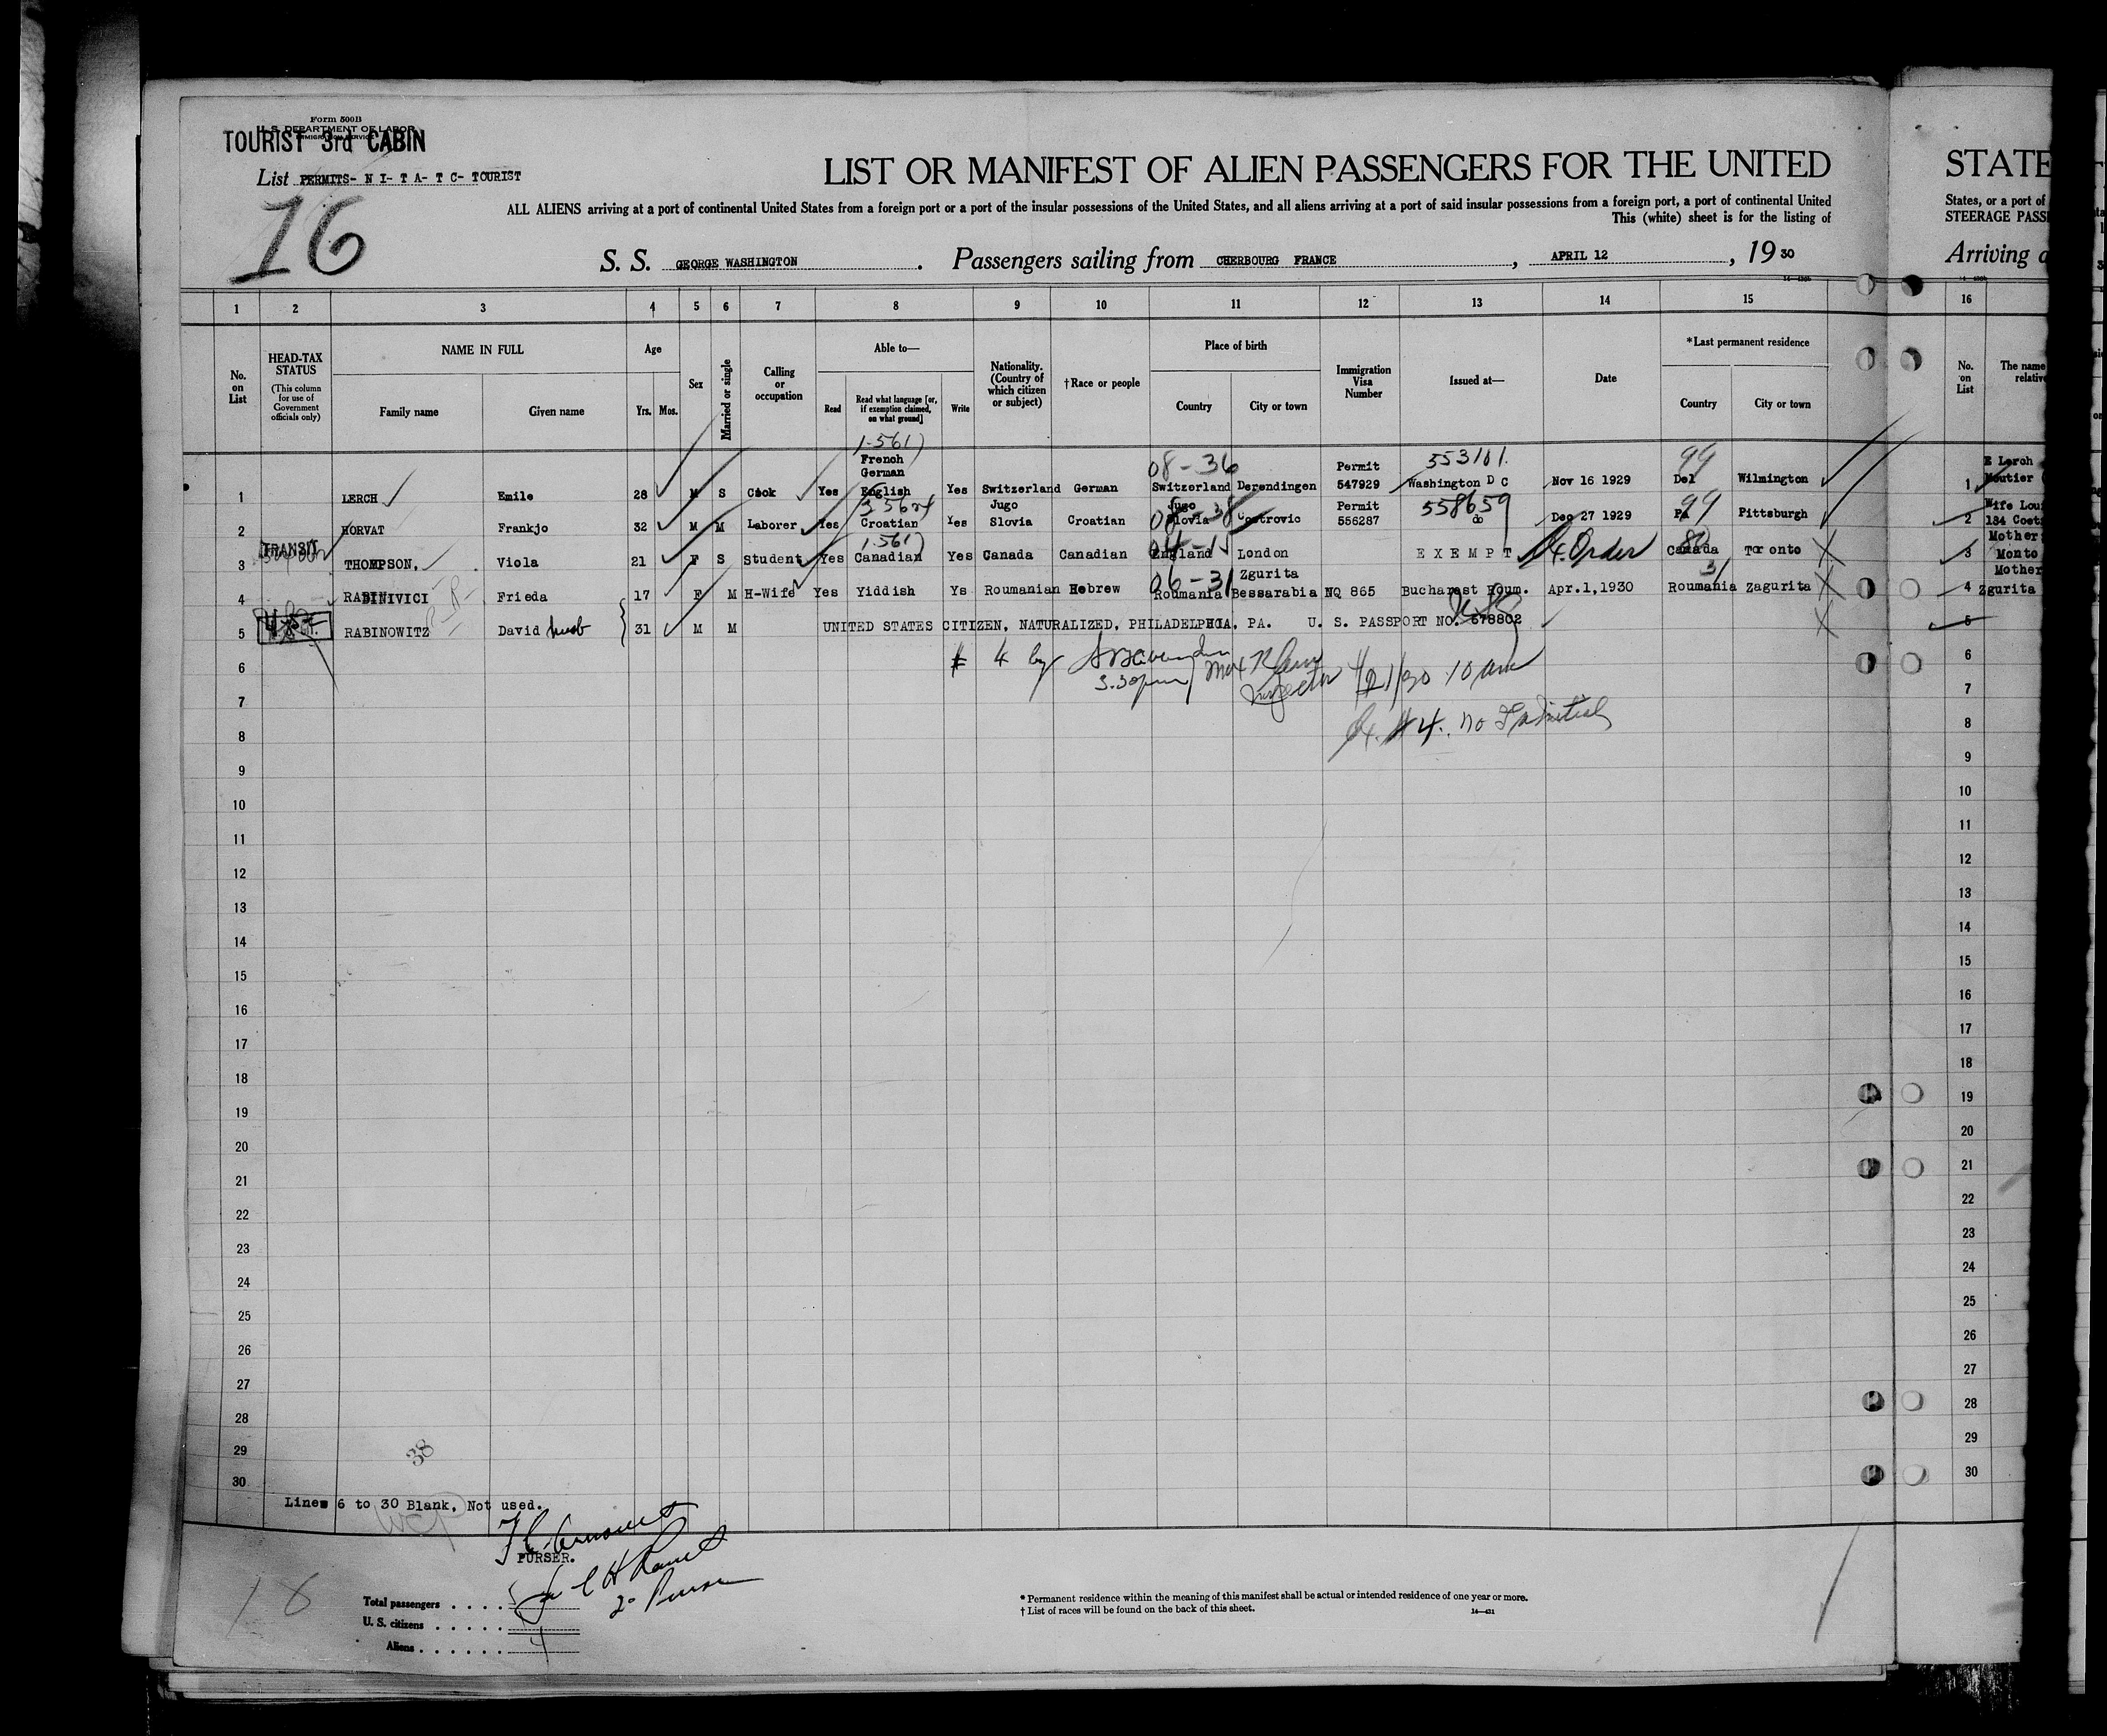 Form 500B
U. S. DEPARTMENT OF LABOR
IMMIGRATION SERVICE
TOURIST 3rd CABIN
List PERMITS- N I- T A- T C- TOURIST
16
LIST OR MANIFEST OF ALIEN PASSENGERS FOR THE UNITED
ALL ALIENS arriving at a port of continental United States from a foreign port or a port of the insular possessions of the United States, and all aliens arriving at a port of said insular possessions from a foreign port, a port of continental United
This (white) sheet is for the listing of
S. S. GEORGE WASHINGTON . Passengers sailing from CHERBOURG FRANCE , APRIL 12 , 19 30
1 2 3 4 5 6 7 8 9 10 11 12 13 14 15
No. on List
HEAD-TAX STATUS
(This column for use of Government officials only)
NAME IN FULL
Family name Given name
Age
Yrs. Mos.
Sex
Married or single
Calling or occupation
Able to—
Read
Read what language [or, if exemption claimed, on what ground]
Write
Nationality. (Country of which citizen or subject)
†Race or people
Place of birth
Country City or town
Immigration Visa Number
Issued at—
Date
*Last permanent residence
Country City or town
1-561)
French
German
08-36
Permit
553101.
99
1 LERCH Emile 28 M S Cook Yes English Yes Switzerland German Switzerland Derendingen 547929 Washington D C Nov 16 1929 Del Wilmington
Jugo
Jugo
Permit
558659
99
2 HORVAT Frankjo 32 M M Laborer Yes Croatian Yes Slovia Croatian Slovia 556287 do Dec 27 1929 Pa Pittsburgh
TRANSIT
1.561)
3 THOMPSON, Viola 21 F S Student Yes Canadian Yes Canada Canadian England London EXEMPT Order Canada Toronto
06-31
Zgurita
31
4 RABINIVICI Frieda 17 F M H-Wife Yes Yiddish Ys Roumanian Hebrew Roumania Bessarabia NQ 865 Bucharest Roum. Apr.1,1930 Roumania Zagurita
5 RABINOWITZ David husb 31 M M UNITED STATES CITIZEN, NATURALIZED, PHILADELPHIA, PA. U. S. PASSPORT NO. 678802
# 4 by
3.30pm
Inspector 4/21/30 10 am
#4. no Initial
6
7
8
9
10
11
12
13
14
15
16
17
18
19
20
21
22
23
24
25
26
27
28
29
30
38
Lines 6 to 30 Blank, Not used.
PURSER.
16
Total passengers . . . . 5
U. S. citizens . . . . .
Aliens . . . . . . 4
* Permanent residence within the meaning of this manifest shall be actual or intended residence of one year or more.
† List of races will be found on the back of this sheet.
14—431
STATE
States, or a port of
STEERAGE PASS
Arriving a
16
No. on List
The name
relative
E Lerch
1 Moutier
Wife Loui
2 184 Coet
Mother
3 Monto
Mother
4 Zgurita
5
6
7
8
9
10
11
12
13
14
15
16
17
18
19
20
21
22
23
24
25
26
27
28
29
30